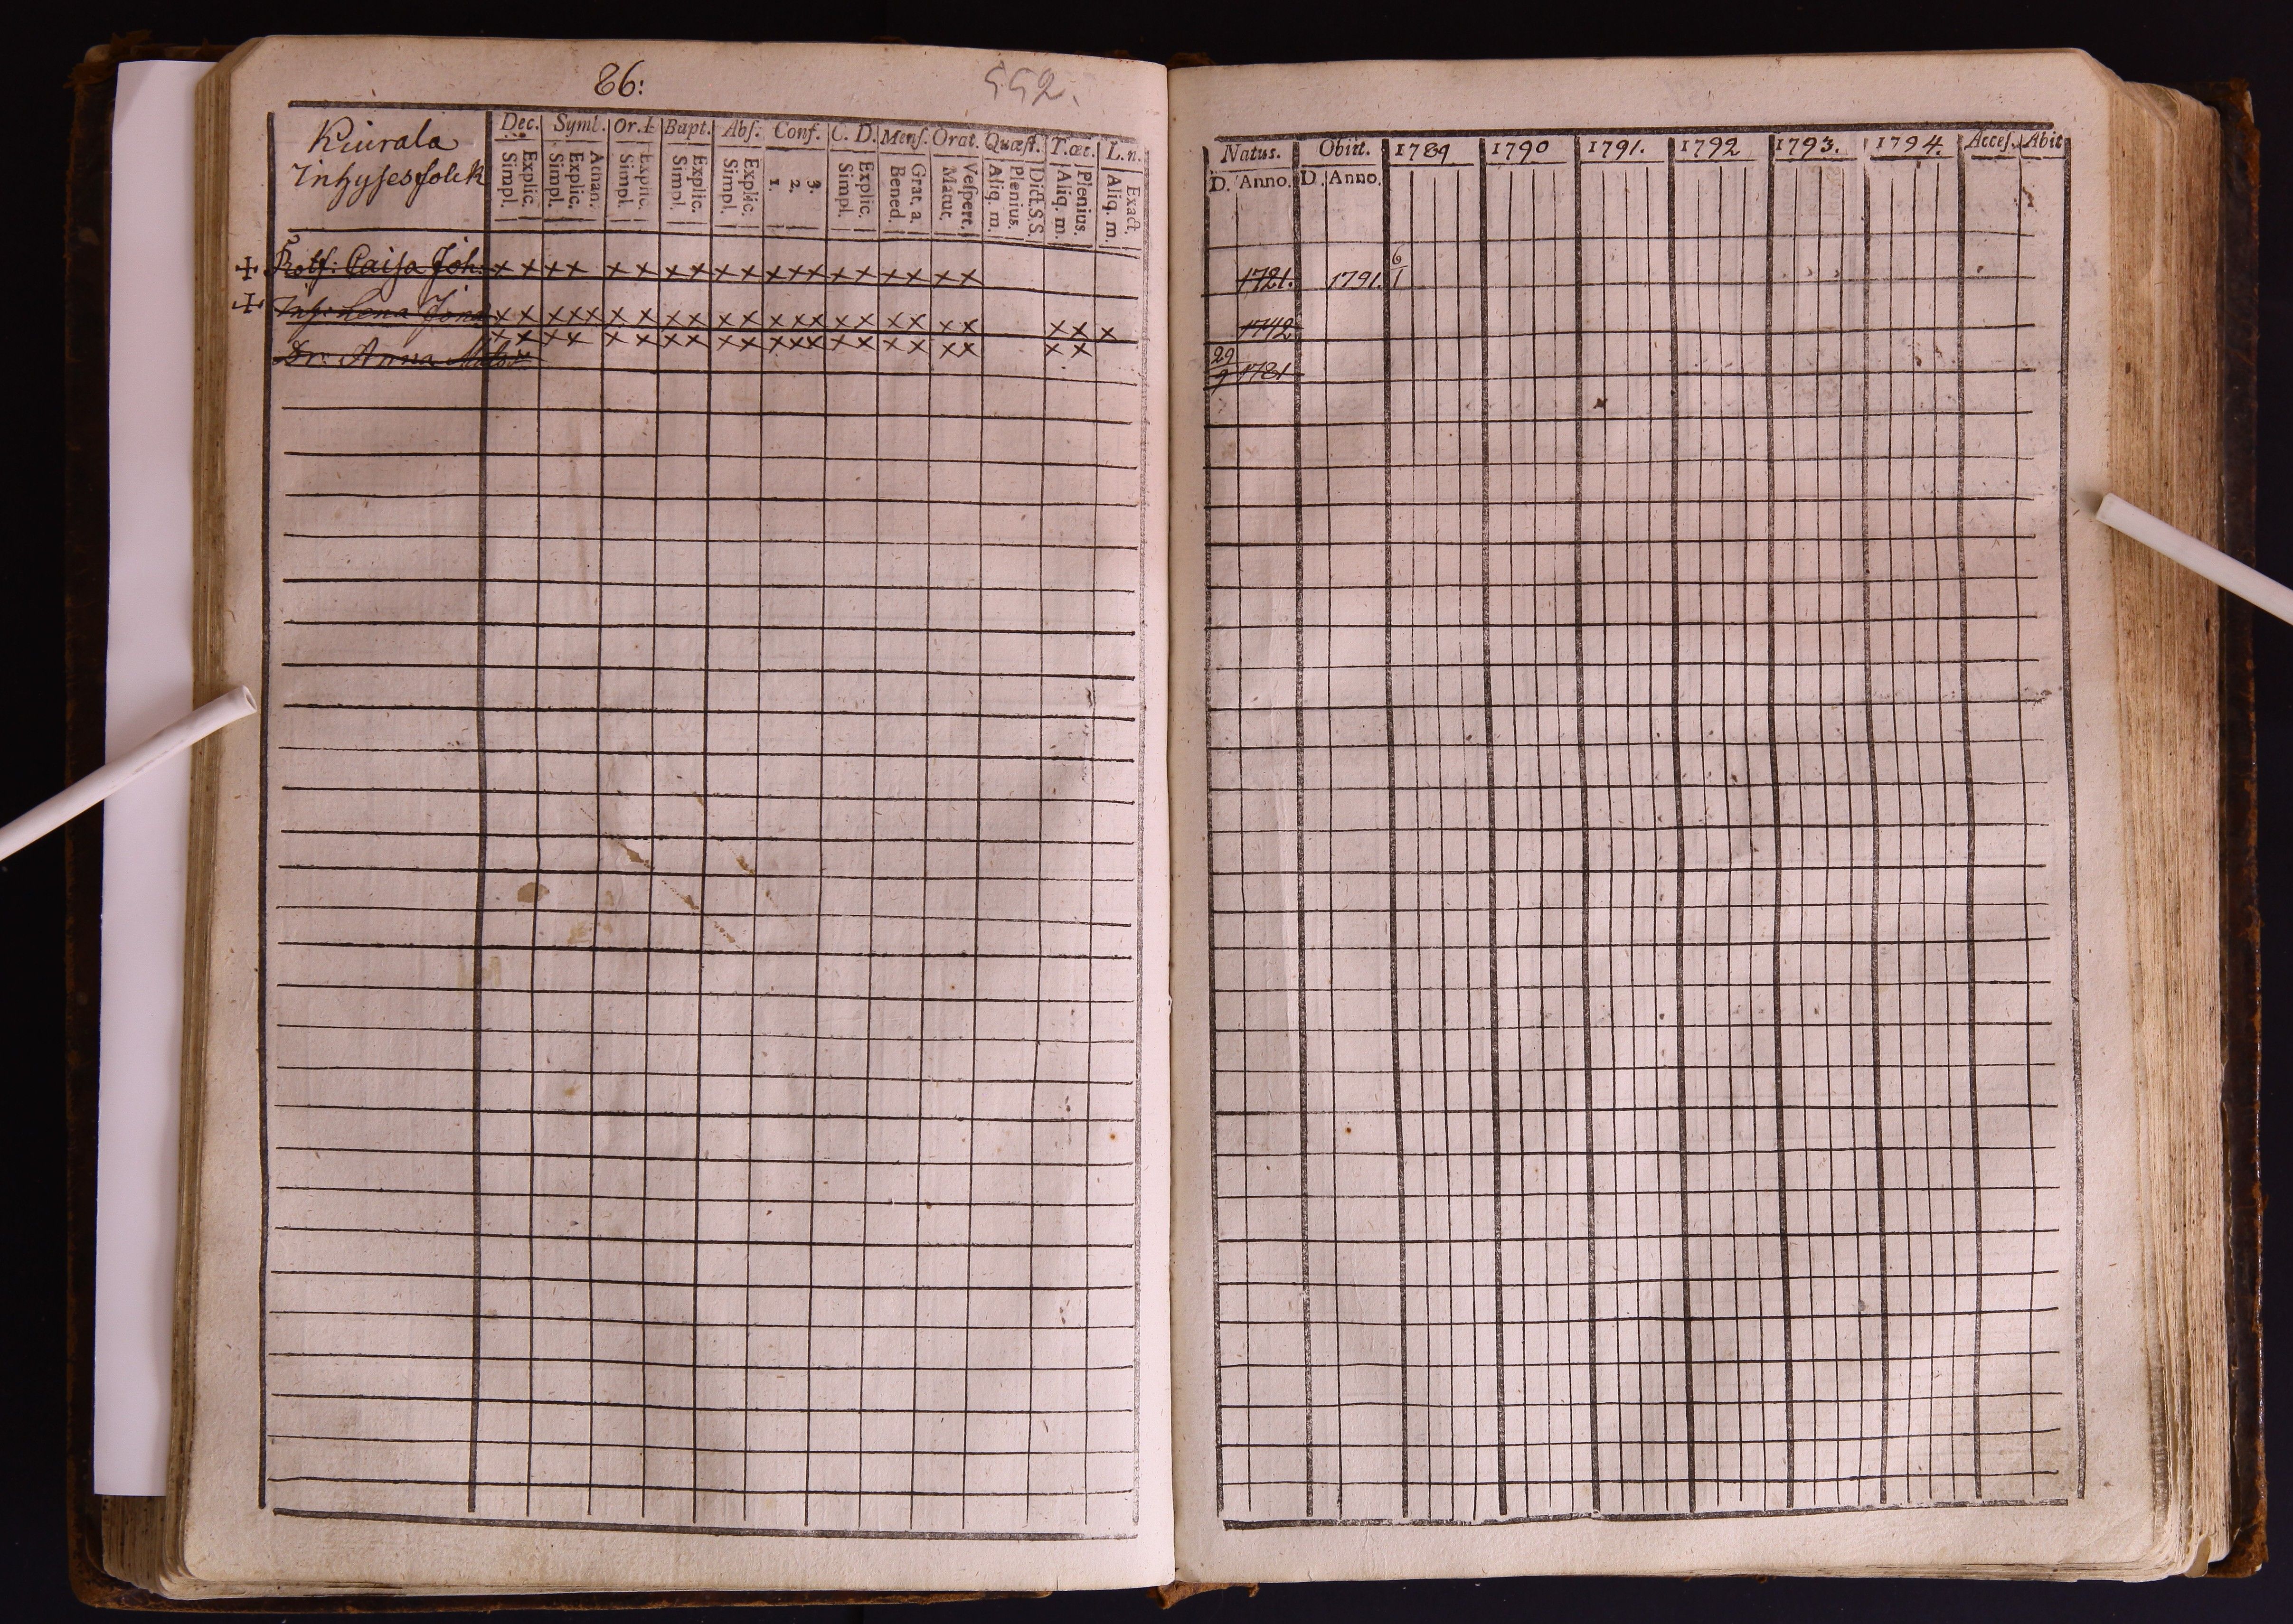 86:
552.
Kiurala
Inhysesfolck
Dec. Symb. Or. Bapt. Abs. Conf. C. D. Mens. Orat. Quæst. T.œc. L.n.
Simpl. Explic. Simpl. Explic. Athan. Simpl. Explic. Simpl. Explic. Simpl. Explic. 1. 2. 3. Simpl. Explic. Bened. Grat. a. Matut. Vespert. Aliq. m. Plenius. Dict. S.S. Aliq. m. Plenius. Aliq. m. Exact.
Caisa Joh: x x x x x x x x x x x x x x x x x x x x
Inh: Lena x x x x x x x x x x x x x x x x x x x x x x x x
Dr: Anna x x x x x x x x x x x x x x x x x x x x x x
Natus. Obiit. 1789 1790 1791. 1792 1793. 1794. Acces. Abit
D. Anno. D. Anno.
1721. 1791. 6/1
1742
29/9 1781